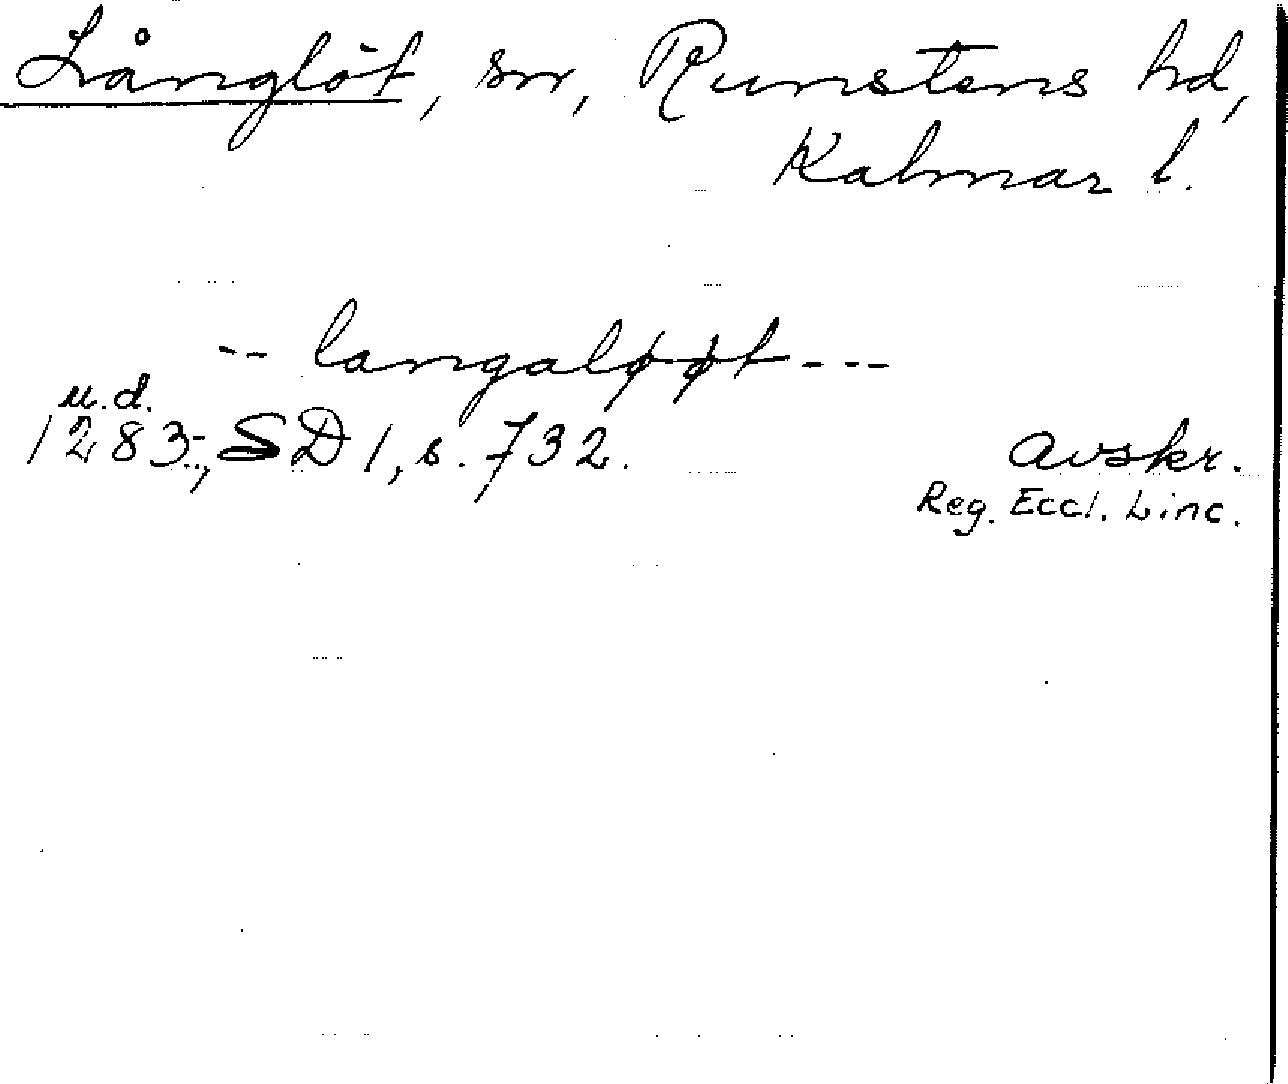 Långlöt, sn, Runstens hd,
Kalmar l.
-- langaløøt ---
u.d.
1283, SD 1, s. 732. avskr.
Reg. Eccl. Linc.